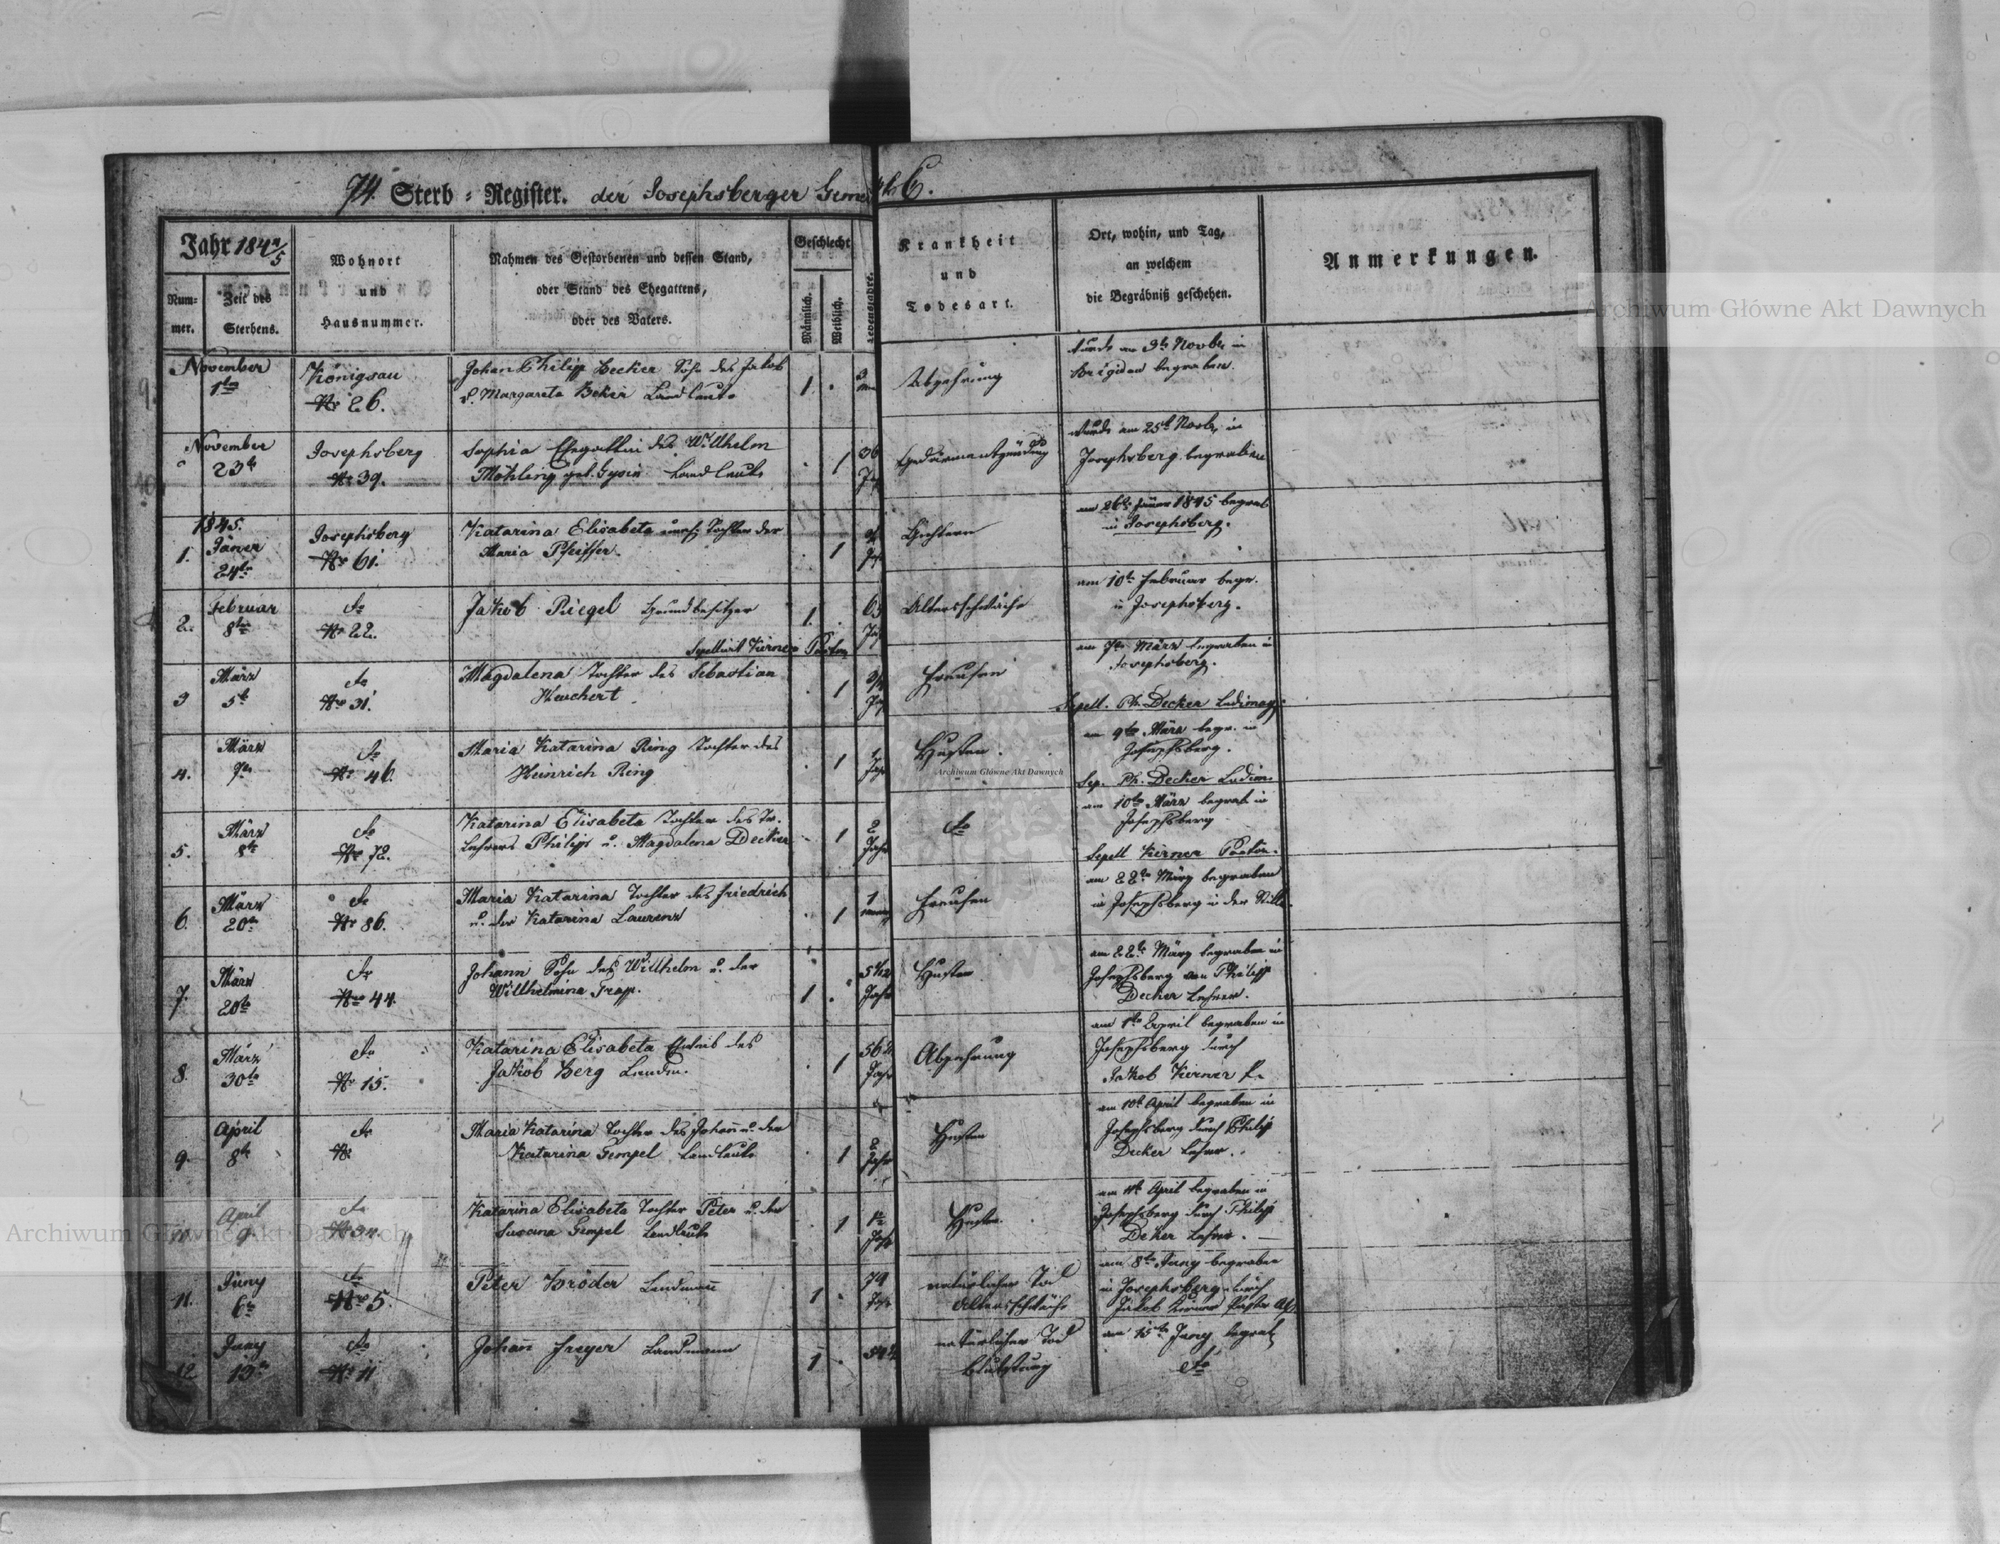 74. Sterb = Register. der Josephsberger
6.
Jahr 184 4/5
Num-
mer.
Zeit des
Sterbens.
Wohnort
und
Hausnummer.
Nahmen des Gestorbenen und dessen Stand,
oder Stand des Ehegattens,
oder des Vaters.
Geschlecht
Männlich.
Weiblich.
Lebensjahre.
Krankheit
und
Todesart.
Ort, wohin, und Tag,
an welchem
die Begräbniß geschehen.
Anmerkungen.
November
1te
Königsau
Nr 26.
Johan Philipp Becker Sohn des Jakob
u. Margareta Beker Landleute
1 .
Abzehrung
wurde am 3te Novbr in
Brigidau begraben.
November
23te
Josephsberg
Nr 39.
Sophia Ehegattin des Willhelm
Möhling geb. Landleute
. 1
36
Gedärmentzündung
wurde am 25te Novbr in
Josephsberg begraben
1845.
1. Jäner
24te
Josephsberg
Nr 61.
Katarina Elisabeta Tochter der
Maria Pfeiffer.
. 1
am 26te Jäner 1845 begrab
in Josephsberg.
2. Februar
8te
do
Nr 22.
Jakob Riegel Grundbesitzer
1 .
Sepelivit Kerner Pastor
Altersschwäche
am 10te Februar begr.
in Josephsberg.
3 März
5te
do
Nr 31.
Magdalena Tochter des Sebastian
. 1
3/4
Freusen
am 7te März begraben in
Josephsberg.
Sepell. Ph. Decker Ludimag.
4. März
7te
do
Nr 46.
Maria Katarina Ring Tochter des
Heinrich Ring
. 1
1
Jahr
Husten.
am 9te März begr. in
Josephsberg.
Sep. Ph. Decker Ludim.
5. März
8te
do
Nr 72.
Katarina Elisabeta Tochter des
Lehrers Philipp u. Magdalena Decker
. 1
2
Jahr
do
am 10te März begrab in
Josephsberg
Sepell Kerner Pastor.
6. März
20te
do
Nr 86.
Maria Katarina Tochter des Friedrich
u. der Katarina Laurenz
. 1
1
Freusen
am 22te März begraben
in Josephsberg in der Stille.
7. März
20te
do
Nr 44.
Johann Sohn des Willhelm u. der
Willhelmina Trap.
1 .
5 1/2
Jahr
Husten
am 22te März begraben in
Josephsberg von Philipp
Decker Lehrer.
8. März
30te
do
Nr 15.
Katarina Elisabeta Eheweib des
Jakob Berg Landm.
. 1
56
Jahr
Abzehrung
am 1te April begraben in
Josephsberg durch
Jakob Kerner P.
9. April
8te
do
Nr
Maria Katarina Tochter des Johann u. der
Katarina Gempel Landleute
. 1
2
Jahr
Husten
am 10te April begraben in
Josephsberg durch Philip
Decker Lehrer.
April
9
do
Nr
Katarina Elisabeta Tochter Peter u. der
Susana Gempel Landleute
. 1
Jahr
Husten
am 11te April begraben in
Josephsberg durch Philip
Deker Lehrer. —
11. Juny
6te
do
Nr 5.
Peter Bröder Landmann
1 .
74
natürlicher Tod
Altersschwäche
am 8te Juny begraben
in Josephsberg durch
Jakob Kerner Pastor
12 Juny
13te
do
Nr 11
Johann Freyer Landmann
1 .
natürlicher Tod
am 15te Juny begrab
do
Archiwum Główne Akt Dawnych
Archiwum Główne Akt Dawnych
Archiwum Główne Akt Dawnych